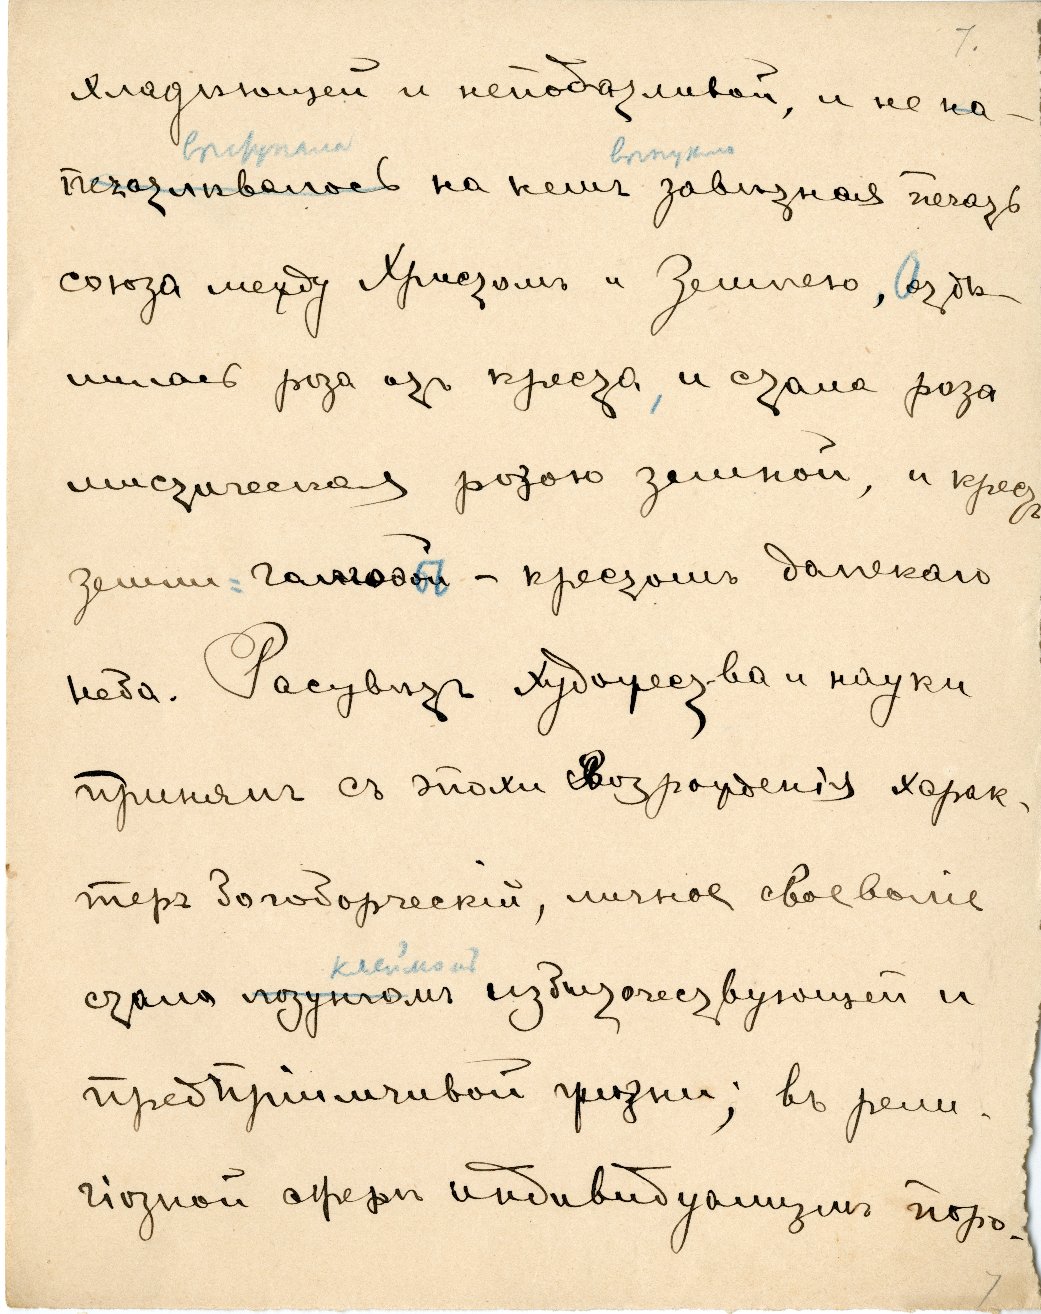 7.
хладѣющей и небоязливой, и не на-
выступала выпукло
печатлѣвалось на немъ завѣтная печать
союза между Христомъ и Землею, отдѣ-
лилась роза отъ креста, и стала роза
мистическая розою земной, и крестъ
земли = голгоѳой – крестомъ далекаго
неба. Расцвѣтъ художества и науки
принялъ съ эпохи Возрожденія харак-
теръ богоборческій, личное своеволіе
клеймомъ
стало лозунгомъ избыточествующей и
предпріимчивой жизни; въ рели-
гіозной сферѣ индивидуализмъ поро-
7